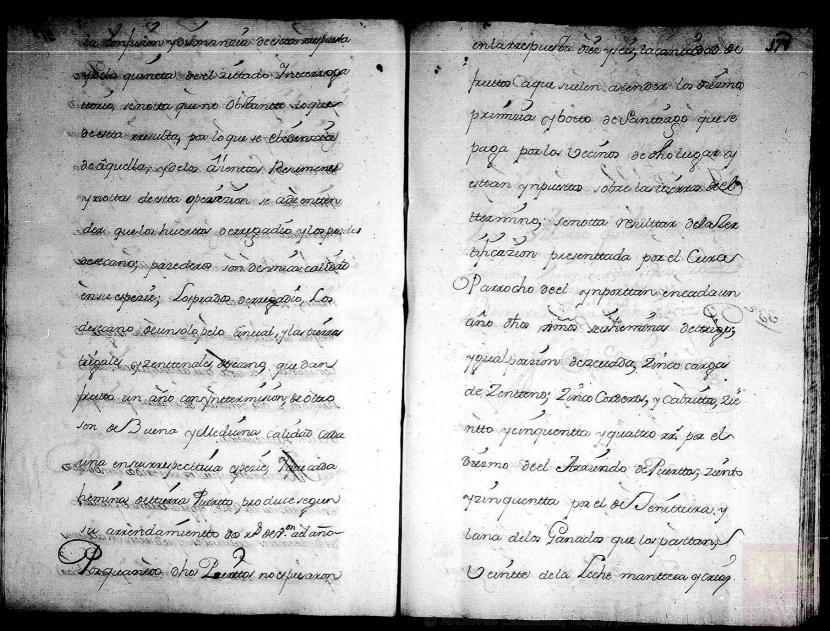 la confusion y disonancia de esta respuesta
y de la quarta de el zittado Interroga
ttorio, se notta que no Obstante lo que
de esta rresulta, por lo que se
de aquella, y de los Asientos Resumenes
y nottas de esta operazion se a de enten
der que los huerttos de rregadio y los prados
de secano; son de una calidad
en su espezie; Los prados de rregadio, Los
de secano de un solo pelo anual, y las tierras
trigales, y zenttenales, de secano que dan
frutto un año con ynttermision, de ottro
son de Buena y Mediana calidad cada
una en su rrespectiva espezie, Y que cada
hemina de tierra Puertto, produce segun
su arrendamientto dos rs de von al año
Por quanto dhos Perittos no espusieron
en la rrespuesta diez y seis, la canttidad de
fruttos a que suelen azender los diezmos
primizia y Votto de Santtiago que se
paga por los Vecinos de dho lugar y
esttan ynpuesttos sobre las tierras de el
ttermino; se notta resulttar de la Zer
tificazion presenttada por el Cura
Parrocho de el ynporttan en cada un
año dhos seis heminas de trigo;
y ygual porzion de zevada, Zinco cargas
de Zentteno; Zinco Corderos, y Cabritto, Zie
ntto y cinquentta y quatro rrs por el
Diezmo de el Arriendo de Puertto; ziento
y zinquentta por el de y
lana de los Ganados que los pasttan;
Veintte de la Leche mantteca y